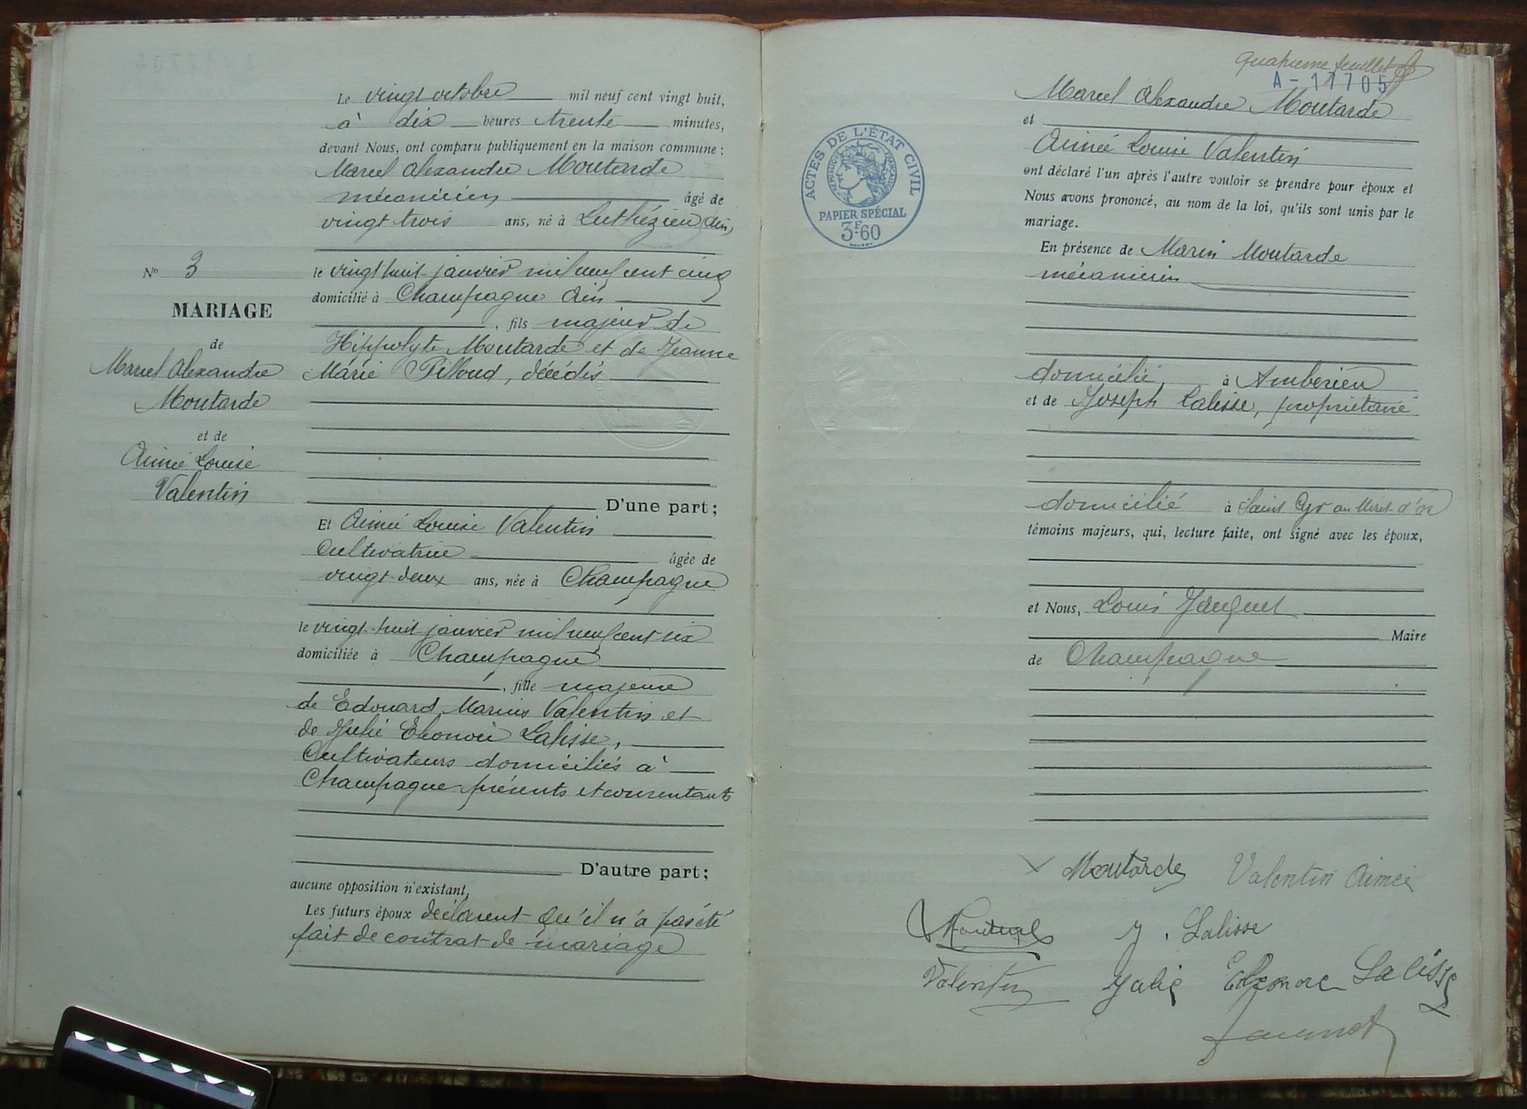 Le vingt octobre mil neuf cent vingt huit,
à dix heures trente minutes,
devant Nous, ont comparu publiquement en la maison commune :
Marcel Alexandre Moutarde
mécanicien âgé de
vingt trois ans, né à Luthézieu (Ain)
le vingt huit janvier mil neuf cent cinq
domicilié à Champagne Ain
, fils majeur de
Hippolyte Moutarde et de Jeanne
Marie Pilloud, décédés
D'une part;
Et Aimée Louise Valentin
Cultivatrice âgée de
vingt deux ans, née à Champagne
le vingt huit janvier mil neuf cent six
domiciliée à Champagne
, fille majeure
de Edouard Marius Valentin et
de Julie Eléonore Lalisse,
Cultivateurs domiciliés à
Champagne présents et consentants
D'autre part;
aucune opposition n'existant,
Les futurs époux déclarent qu'il n'a pas été
fait de contrat de mariage
N° 3
MARIAGE
de
Marcel Alexandre
Moutarde
et de
Aimée Louise
Valentin
quatrième feuillet
A - 11705
ACTES DE L'ÉTAT CIVIL
PAPIER SPÉCIAL
3F60
Marcel Alexandre Moutarde
et
Aimée Louise Valentin
ont déclaré l'un après l'autre vouloir se prendre pour époux et
Nous avons prononcé, au nom de la loi, qu'ils sont unis par le
mariage.
En présence de Marin Moutarde
mécanicien
domicilié à Ambérieu
et de Joseph Lalisse, propriétaire
domicilié à Saint Cyr au Mont d'or
témoins majeurs, qui, lecture faite, ont signé avec les époux,
et Nous, Louis Jauquet
Maire
de Champagne
Moutarde Valentin Aimée
J. Lalisse
Valentin Julie Eléonore Lalisse